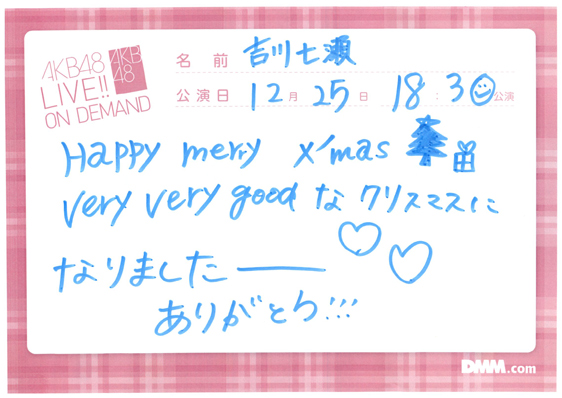 AKB48
LIVE!!
ON DEMAND
AKB
48
名前 吉川七瀬
公演日 12月 25日 18:30公演
Happy merry X'mas
very very good な クリスマスに
なりました――
ありがとう!!!
DMM.com